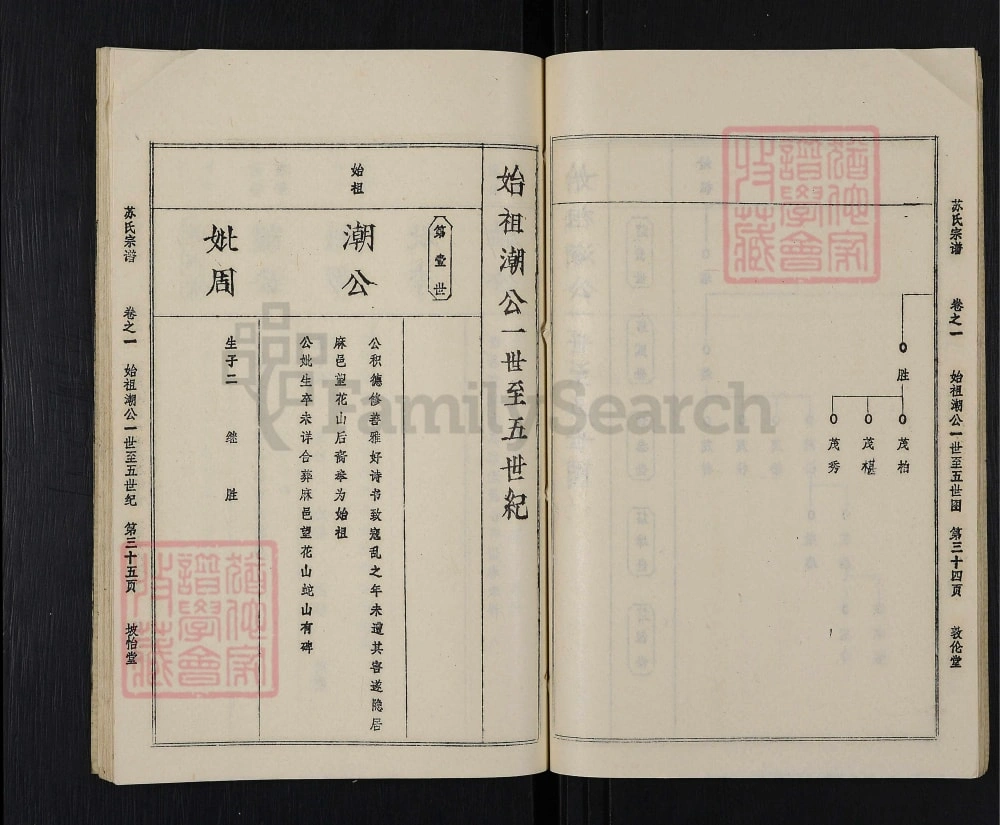 苏氏宗谱 卷之一 始祖潮公一世至五世图 第三十四页 敦伦堂
胜
茂柏
茂椹
茂秀
猶他家譜學會收藏
始祖潮公一世至五世紀
第壹世
始祖
潮公
公积德修善雅好诗书致寇乱之年未遭其害遂隐居
麻邑望花山后裔奉为始祖
公妣生卒未详合葬麻邑望花山蛇山有碑
妣周
生子二 继 胜
苏氏宗谱 卷之一 始祖潮公一世至五世纪 第三十五页 坡怡堂
猶他家譜學會收藏
FamilySearch